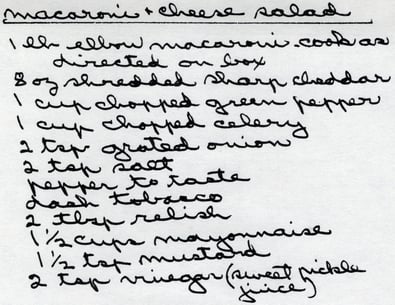 macaroni + cheese salad
1 lb elbow macaroni. cook as
directed on box
8 oz shredded sharp cheddar
1 cup chopped green pepper
1 cup chopped celery
2 tsp grated onion
2 tsp salt
pepper to taste
dash tobacco
2 tbsp relish
1 1/2 cups mayonnaise
1 1/2 tsp mustard
2 tsp vinegar (sweet pickle
juice)